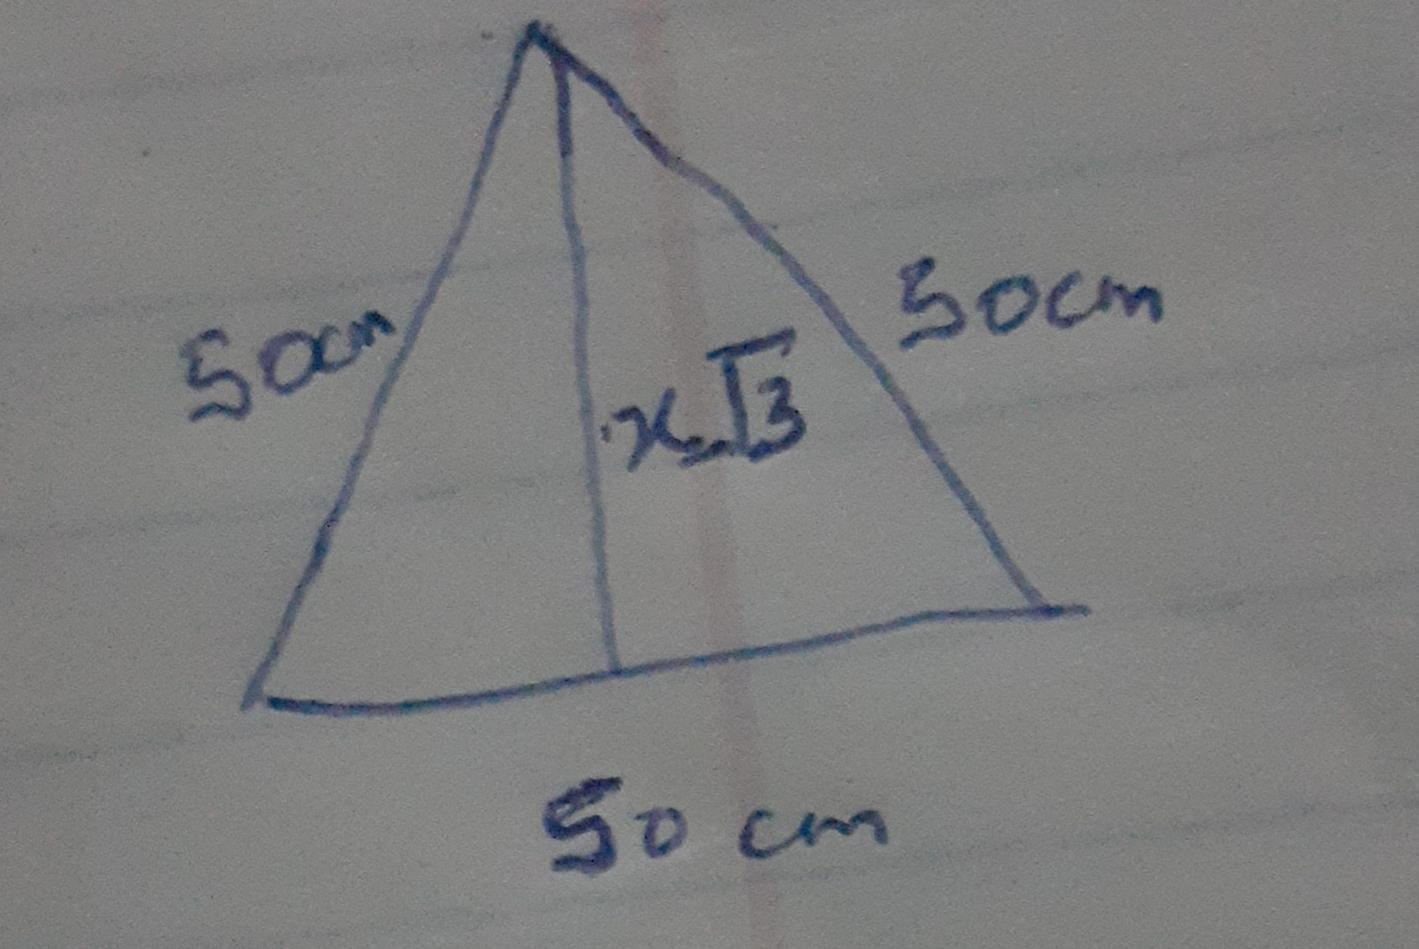 50cm
50cm
x√3
50 cm